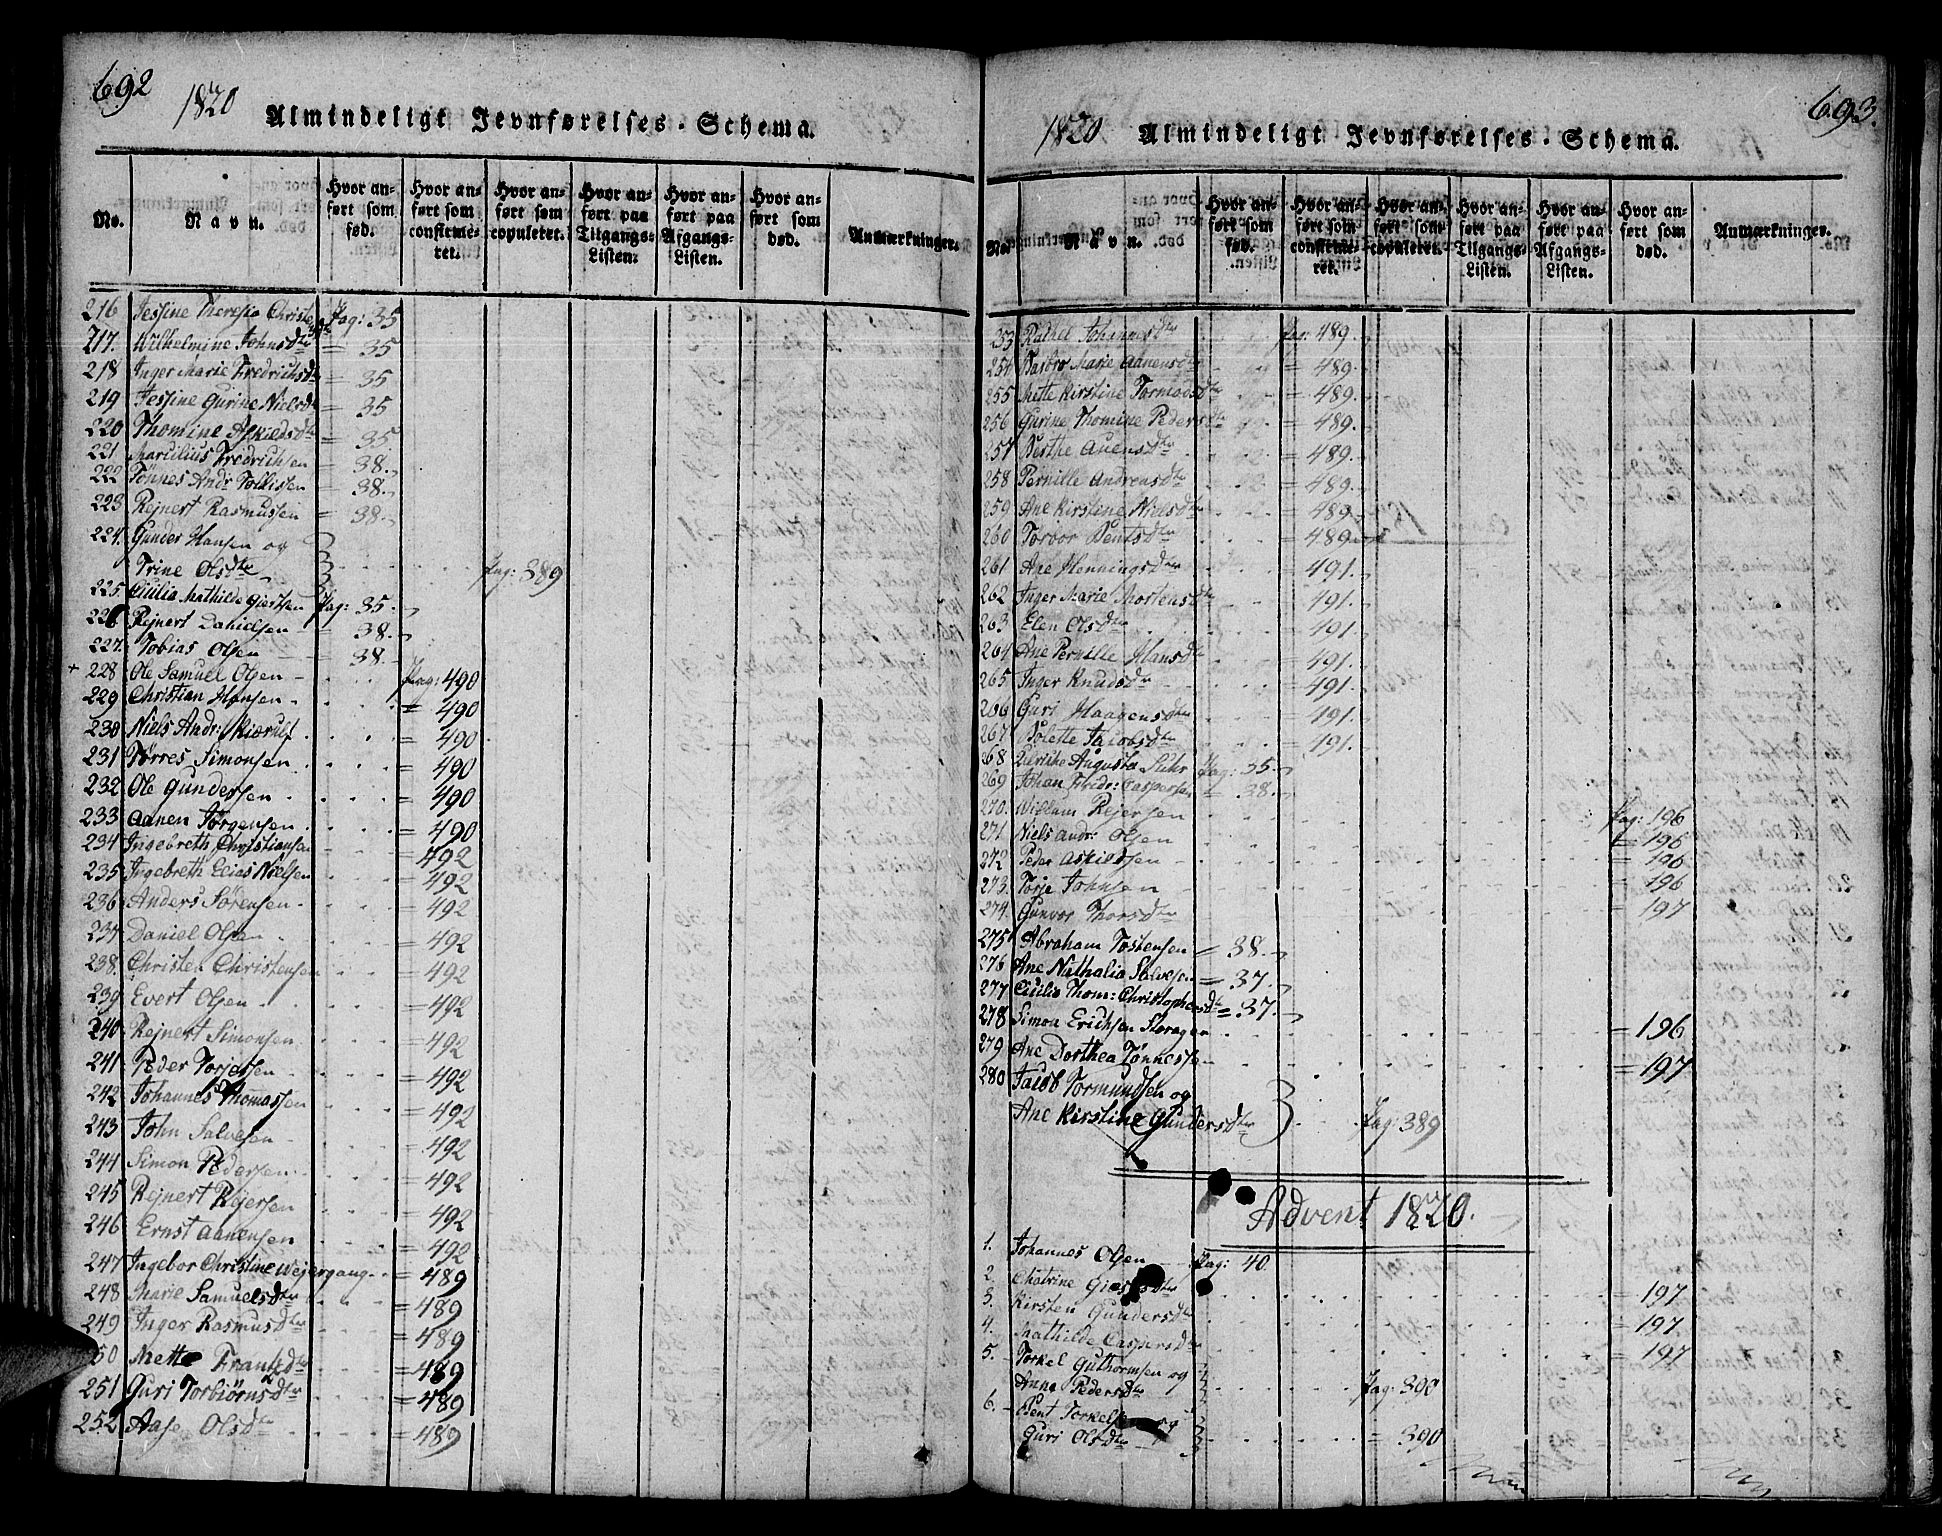 692
1820
Almindeligt Jevnførelses-Schema.
No.
Navn.
Hvor anført som fød.
Hvor anført som confirmeret.
Hvor anført som copuleret.
Hvor anført paa Tilgangs-Listen.
Hvor anført paa Afgangs-Listen.
Hvor anført som død.
Anmærkninger.
216 Jessine Theresia Pag: 35
217. Wilhelmine Johnsdtr = 35
218 Inger Marie Fredrichsdtr = 35
219 Jessine Gurine Nielsdtr = 35
220 Thomine Askieldsdtr = 35
221 Marcilius Fredrichsen = 38.
222 Tønnes Andr: = 38.
223 Rejnert Rasmussen = 38.
224. Gunder Hansen og
Trine Olsdtr Pag: 389
225. Cicilia Mathilde Pag: 35.
226 Rejnert Danielsen = 38.
227. Tobias Olsen = 38.
+ 228 Ole Samuel Olsen Pag: 490
229 Christian Hansen = 490
230 Niels Andr: Skierulf = 490
231 Tørres Simonsen = 490
232 Ole Gundersen = 490
233 Aanen Jørgensen = 490
234 Ingebreth Christiansen = 492
235 Ingebreth Elias Nielsen = 492
236 Anders Sørensen = 492
237 Daniel Olsen = 492
238. Christen Christensen = 492
239 Evert Olsen = 492
240 Rejnert Simonsen = 492
241 Peder Torjersen = 492
242 Johannes Thomassen = 492
243 John Salvesen = 492
244 Simon Pedersen = 492
245 Rejnert Rejersen = 492
246 Ernst Aanensen = 492
247 Ingebor Christine Wejergang = 489
248 Marie Samuelsdtr = 489
249 Inger Rasmusdtr = 489
250 Mette Frantzdtr = 489
251 Guri Torbiørnsdtr = 489
252 Aase Olsdtr = 489
693.
1820
Almindeligt Jevnførelses-Schema.
No.
Navn.
Hvor anført som fød.
Hvor anført som confirmeret.
Hvor anført som copuleret.
Hvor anført paa Tilgangs-Listen.
Hvor anført paa Afgangs-Listen.
Hvor anført som død.
Anmærkninger.
253 Rachel Johannesdtr Pag: 489.
254 Marie Aanensdtr = 489.
255 Mette Kirstine Tormodsdtr = 489.
256 Gurine Thomine Pedersdtr = 489.
257 Berthe Auensdtr = 489.
258 Pernille Andreasdtr = 489.
259 Ane Kirstene Nielsdtr = 489.
260 Torbor Bentsdtr = 489.
261 Ane Henningsdtr = 491.
262 Inger Marie Mortensdtr = 491.
263 Elen Olsdtr = 491.
264 Ane Pernille Hansdtr = 491.
265 Inger Knudsdtr = 491.
266 Guri Haagensdtr 491.
267 Bolette Jacobsdtr = 491.
268 Ulriche Augusta Suhr Pag: 35.
269 Johan Fredr: Caspersen = 38.
270. Willum Rejersen Pag: 196
271. Niels Andr: Olsen = 196
272 Peder Askildsen = 196
273. Torje Johnsen = 196
274. Gunvor Thorsdtr = 197
275 Abraham Tostensen = 38.
276 Ane Nathalia Salvesen = 37.
277 Cicilia Thom: Christophersdtr = 37.
278 Simon Erichsen Storagen = 196
279 Ane Dorthea Tønnessen = 197
280 Jacob Tormundsen og
Ane Kirstine Gundersdtr Pag: 389
Advent 1820.
1. Johannes Olsen Pag: 40.
2. Chatrine = 197
3. Kirsten Gundersdtr = 197
4. Mathilde Caspersdtr = 197
5. Torkel Guthormsen og
Anne Pedersdtr Pag: 390
6. Bent Torkelsen og
Guri Olsdtr = 390